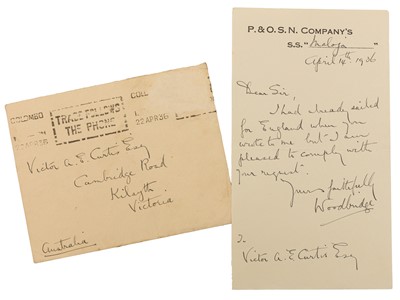 COLOMBO
TRADE FOLLOWS
THE PHONE
22 APR 36
Victor A. E. Curtis Esq
Cambridge Road
Kilsyth
Victoria
Australia
P. & O. S. N. COMPANY'S
S.S. "Maloja"
April 14th 1936
Dear Sir,
I had already sailed
for England when you
wrote to me but I am
pleased to comply with
your request.
Yours faithfully
Woodbridge
Victor A. E. Curtis Esq